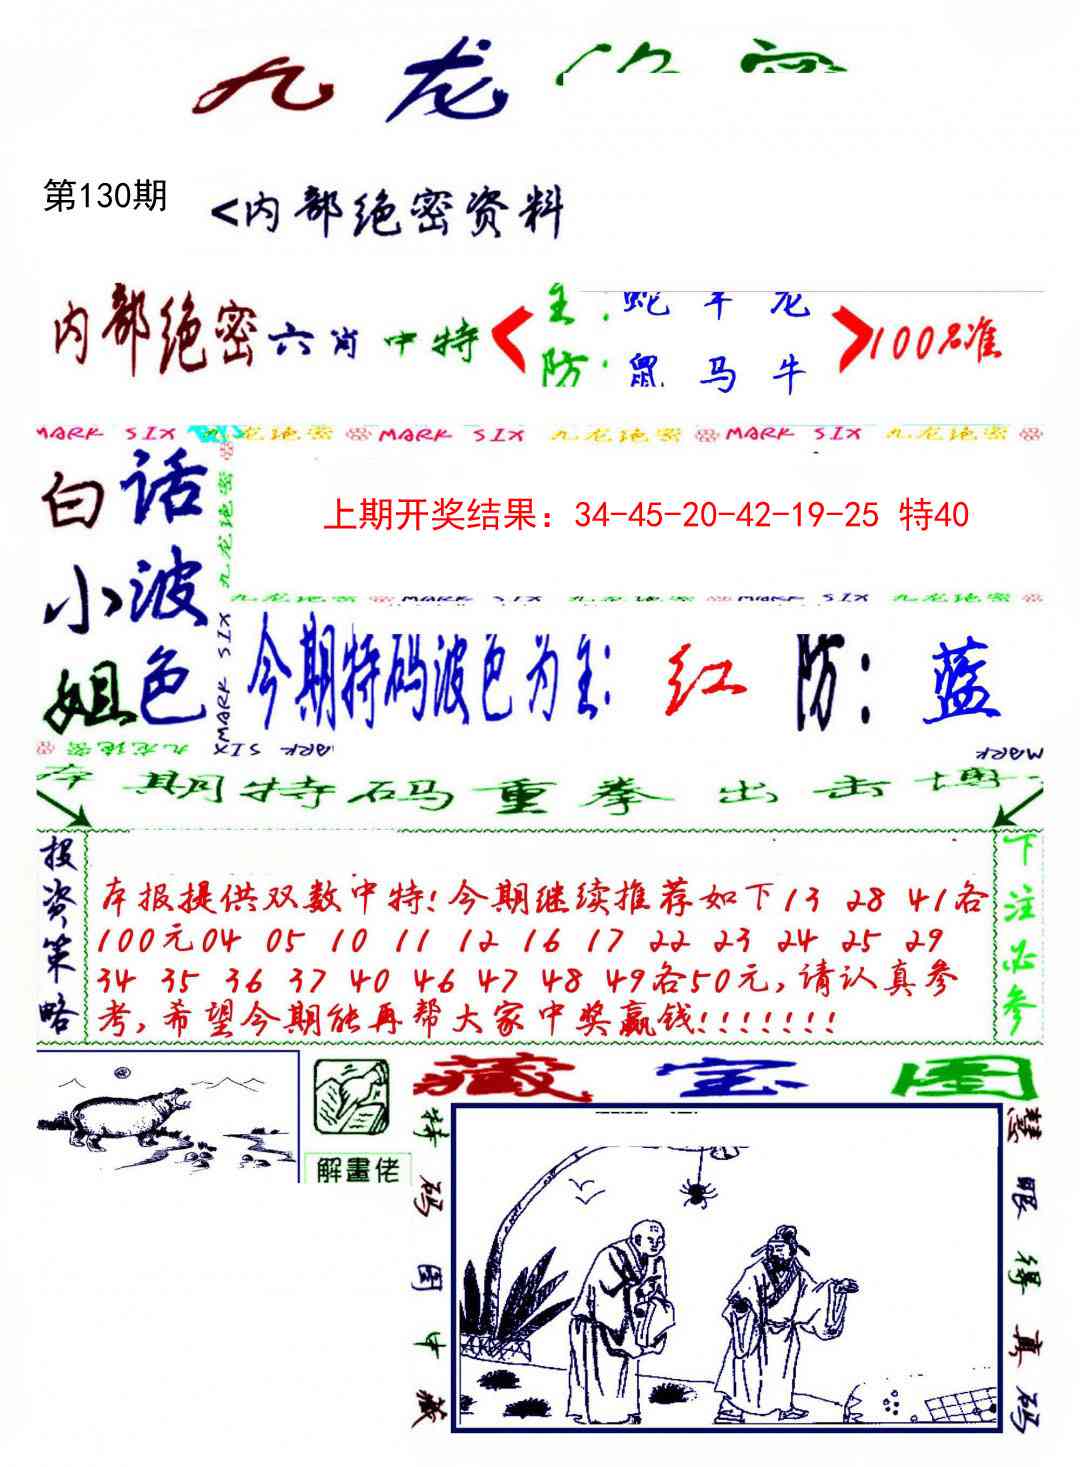 九龙
第130期
<内部绝密资料
内部绝密六肖中特
主:蛇羊龙
防:鼠马牛
100%准
MARK SIX 九龙绝密 MARK SIX 九龙绝密 MARK SIX 九龙绝密
白话
小波
姐色
九龙绝密
MARK SIX
上期开奖结果：34-45-20-42-19-25 特40
九龙绝密 MARK SIX 九龙绝密 MARK SIX 九龙绝密
今期特码波色为主: 红 防: 蓝
九龙绝密 MARK SIX MARK
MARK
本期特码重拳出击博
投资策略
本报提供双数中特!今期继续推荐如下13 28 41各
100元04 05 10 11 12 16 17 22 23 24 25 29
34 35 36 37 40 46 47 48 49各50元,请认真参
考,希望今期能再帮大家中奖赢钱!!!!!!!
下注必参
解畫佬
藏宝图
特码图中藏
慧眼得真码